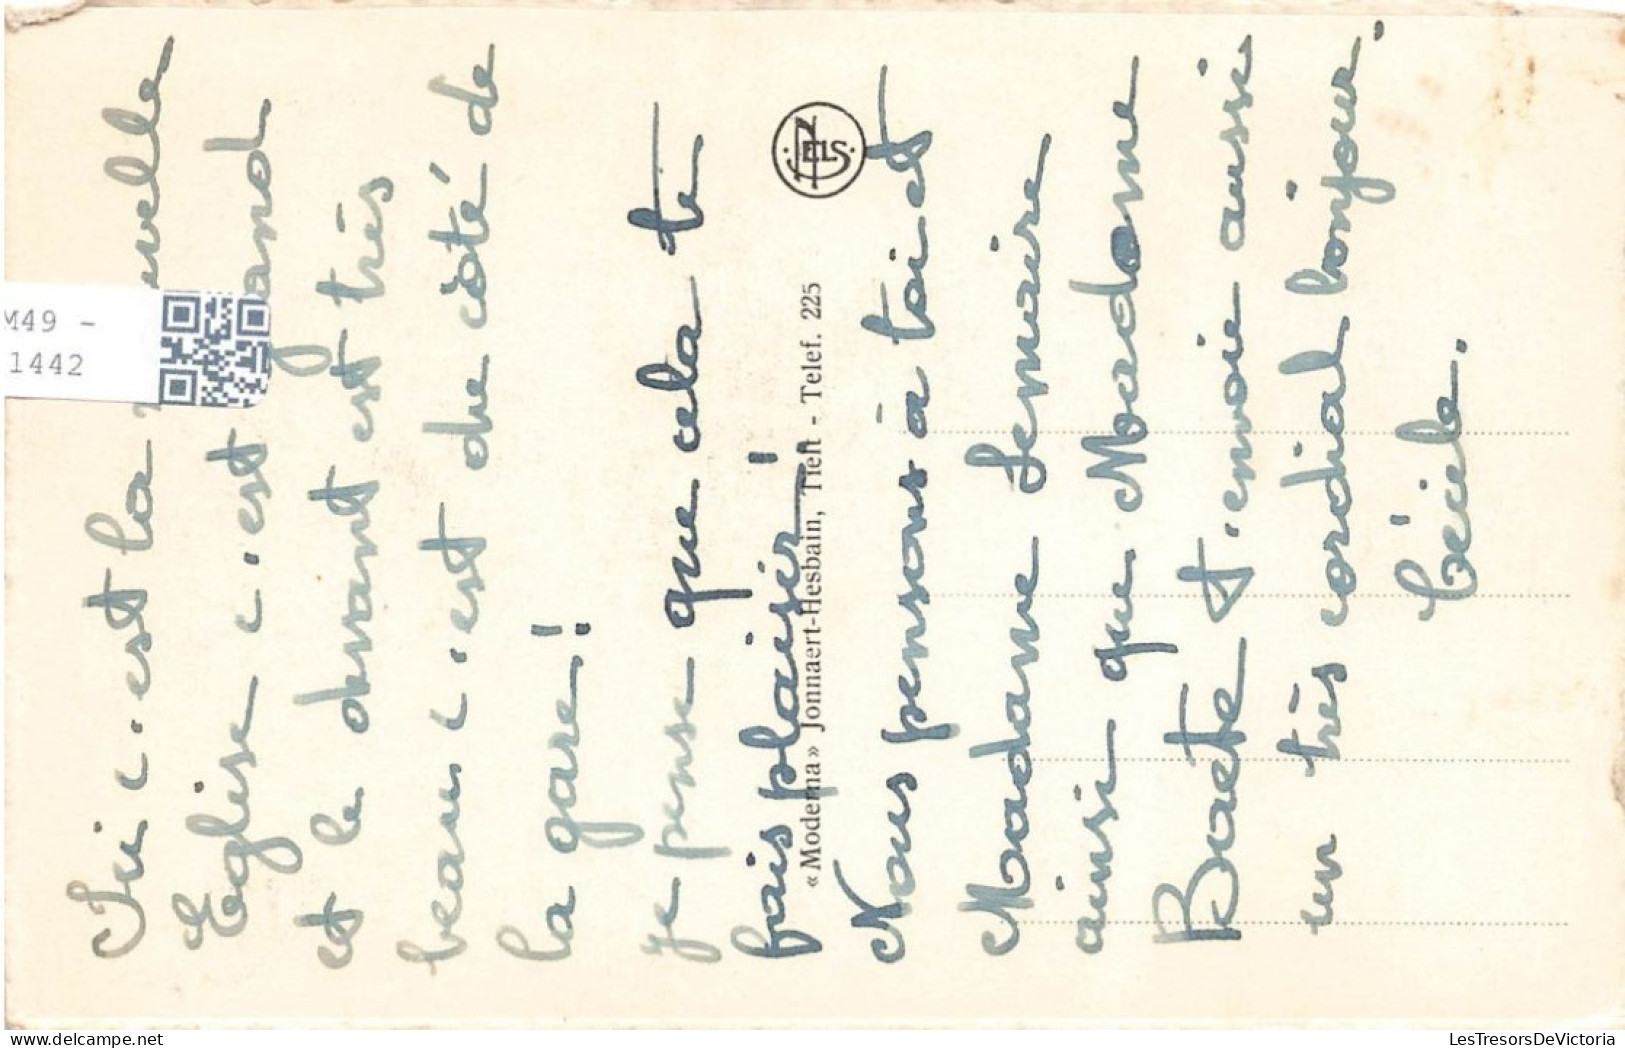 Ici c'est la
Eglise c'est
et le devant est très
beau c'est du côté de
la gare!
je pense que cela te
fais plaisir!
Nous pensons à toi et
Madame Lemaire
ainsi que Madame
Baete t'envoie aussi
un très cordial bonjour.
Cécile.
«Moderna» Jonnaert-Hesbain, Tielt - Telef. 225
NELS
M49 -
1442
LesTresorsDeVictoria
www.delcampe.net